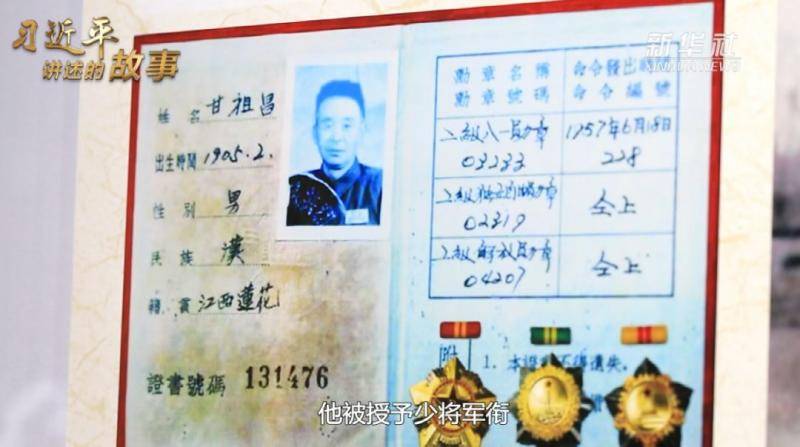 习近平
讲述的故事
新华社
XINHUA NEWS
姓名 甘祖昌
出生時間 1905.2.
性別 男
民族 漢
籍貫 江西蓮花
證書號碼 131476
勳章名稱 命令發出時
勳章號碼 命令編號
二級八一勛章 1957年6月18日
03233 228
二級独立自由勛章 仝上
02319
二級解放勛章 仝上
04207
附 1. 本證不得遺失。
他被授予少将军衔